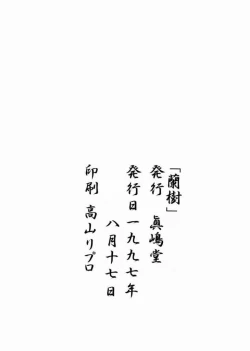 「蘭樹」
発行　眞嶋堂
発行日一九九七年
八月十七日
印刷　高山リプロ